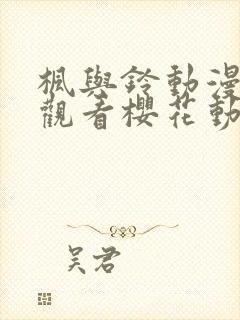 楓與鈴動漫
觀看櫻花動
吴君